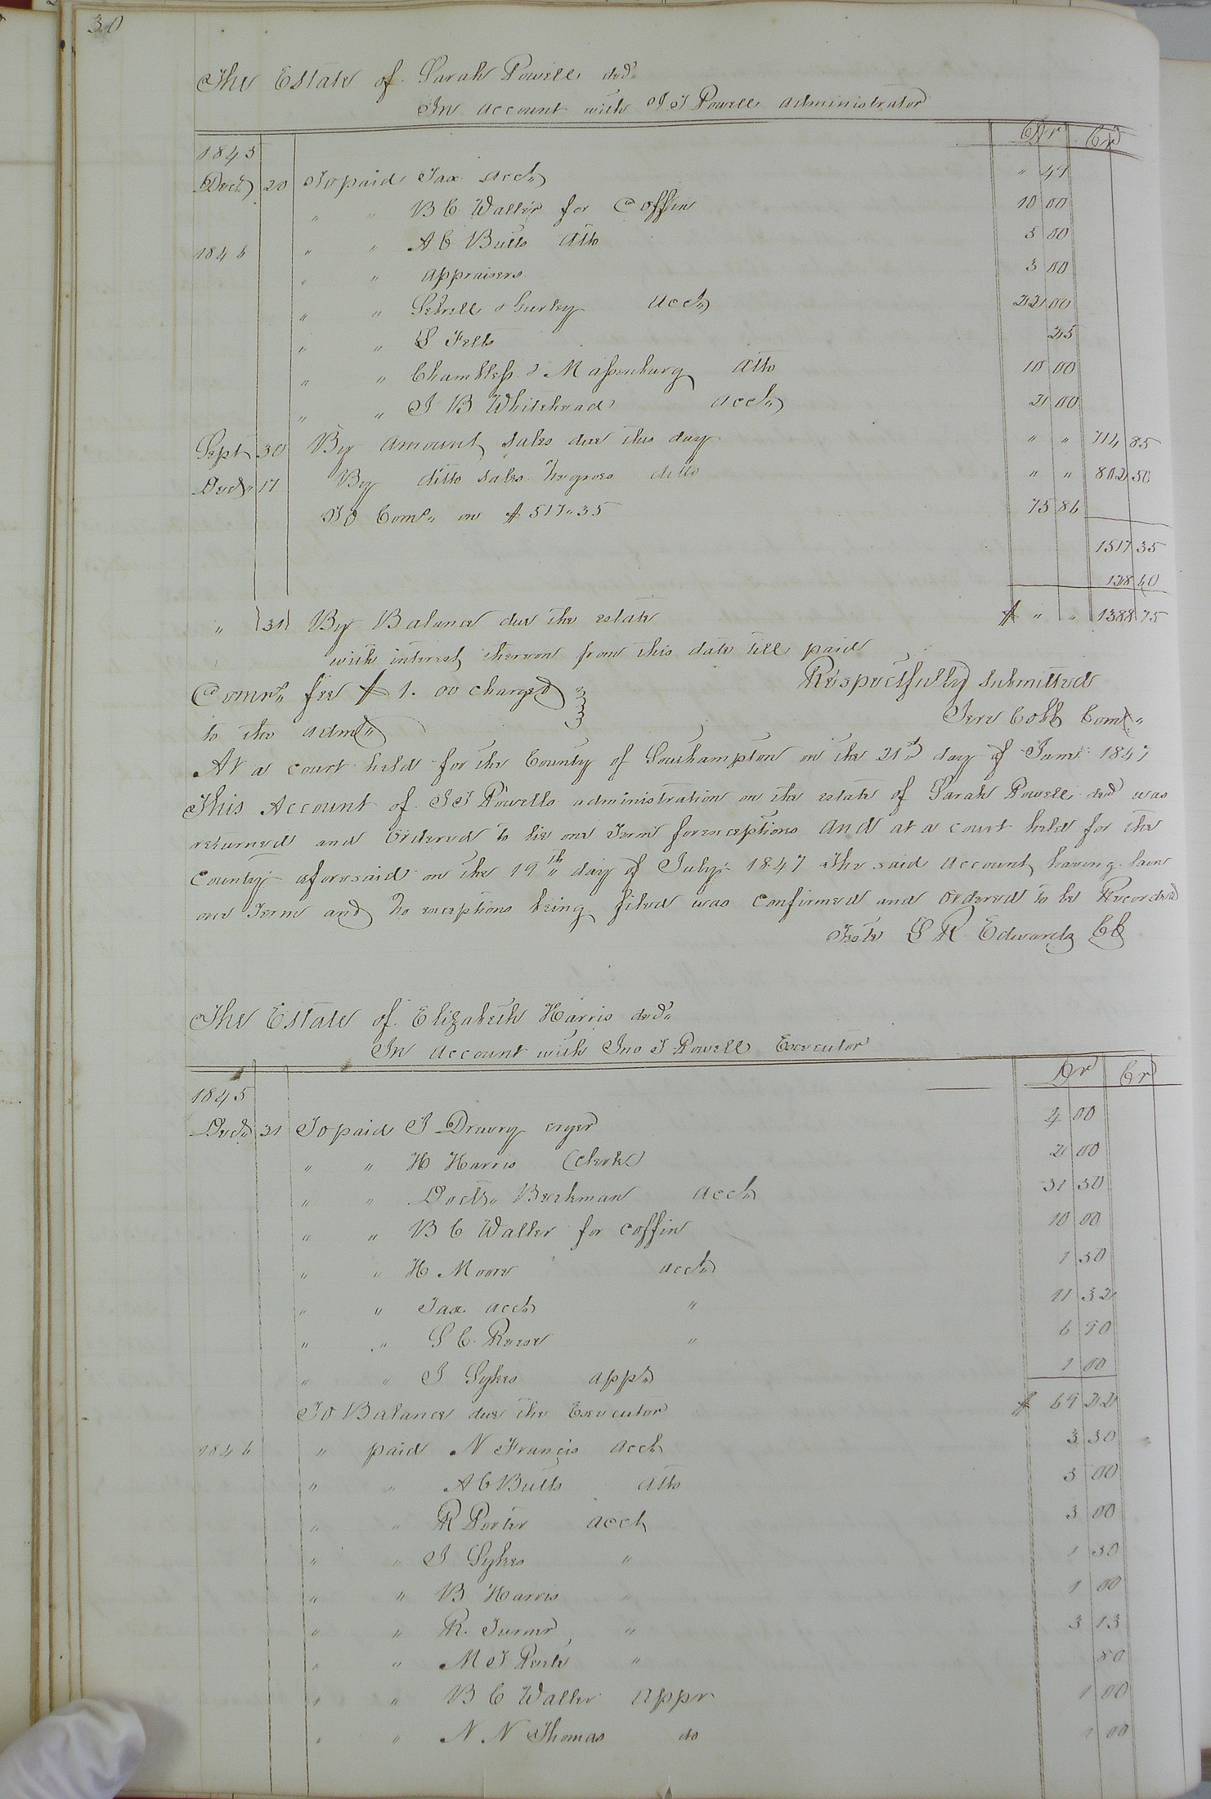 30
The Estate of Sarah Powell decd.
In account with J J Powell administrator
Dr Cr
1845
Decr 20 To paid Tax acct " 49
" " B C Waller for Coffin 10 00
1846 " " A C Butts Atto 5 00
" " appraisers 3 00
" " Sebrell & Gurley acct 22 00
" " S Felts 25
" " Chambliss & Massenburg Atto 10 00
" " J B Whitehead acct 2 00
Sept 30 By amount sales due this day " " 714 85
Decr 17 By ditto sales Negroes ditto " " 802 50
To Coms. on $1517.35 75 86
1517 35
128 60
" 31 By Balance due the estate $ " " 1388 75
with interest thereon from this date till paid
Comrs. fee $1.00 charged
to the adm.
Respectfully submitted
Jere Cobb Comr.
At a court held for the County of Southampton on the 21st day of June 1847
This Account of J J Powells administration on the estate of Sarah Powell decd was
returned and Ordered to lie one Term for exceptions and at a court held for the
County aforesaid on the 19th day of July 1847 The said account having lain
one Term and no exceptions being filed was confirmed and ordered to be Recorded
Teste L R Edwards CC
The Estate of Elizabeth Harris decd.
In account with Jno J Powell Executor
Dr Cr
1845
Decr 31 To paid J Drewry cryer 4 00
" " H Harris (clerk) 2 00
" " Doctr. Beckman acct 31 50
" " B C Waller for coffin 10 00
" " H Moore acct 1 50
" " Tax acct " 11 32
" " S C Reese " 6 90
" " J Sykes appr 2 00
To Balance due the Executor $ 69 22
1846 " paid N Francis acct 3 30
" " A C Butts Atto 5 00
" " R Porter acct 3 00
" " J Sykes " 1 50
" " B Harris " 1 00
" " R. Turner " 3 13
" " M J " 80
" " B C Waller appr 1 00
" " N N Thomas do 1 00